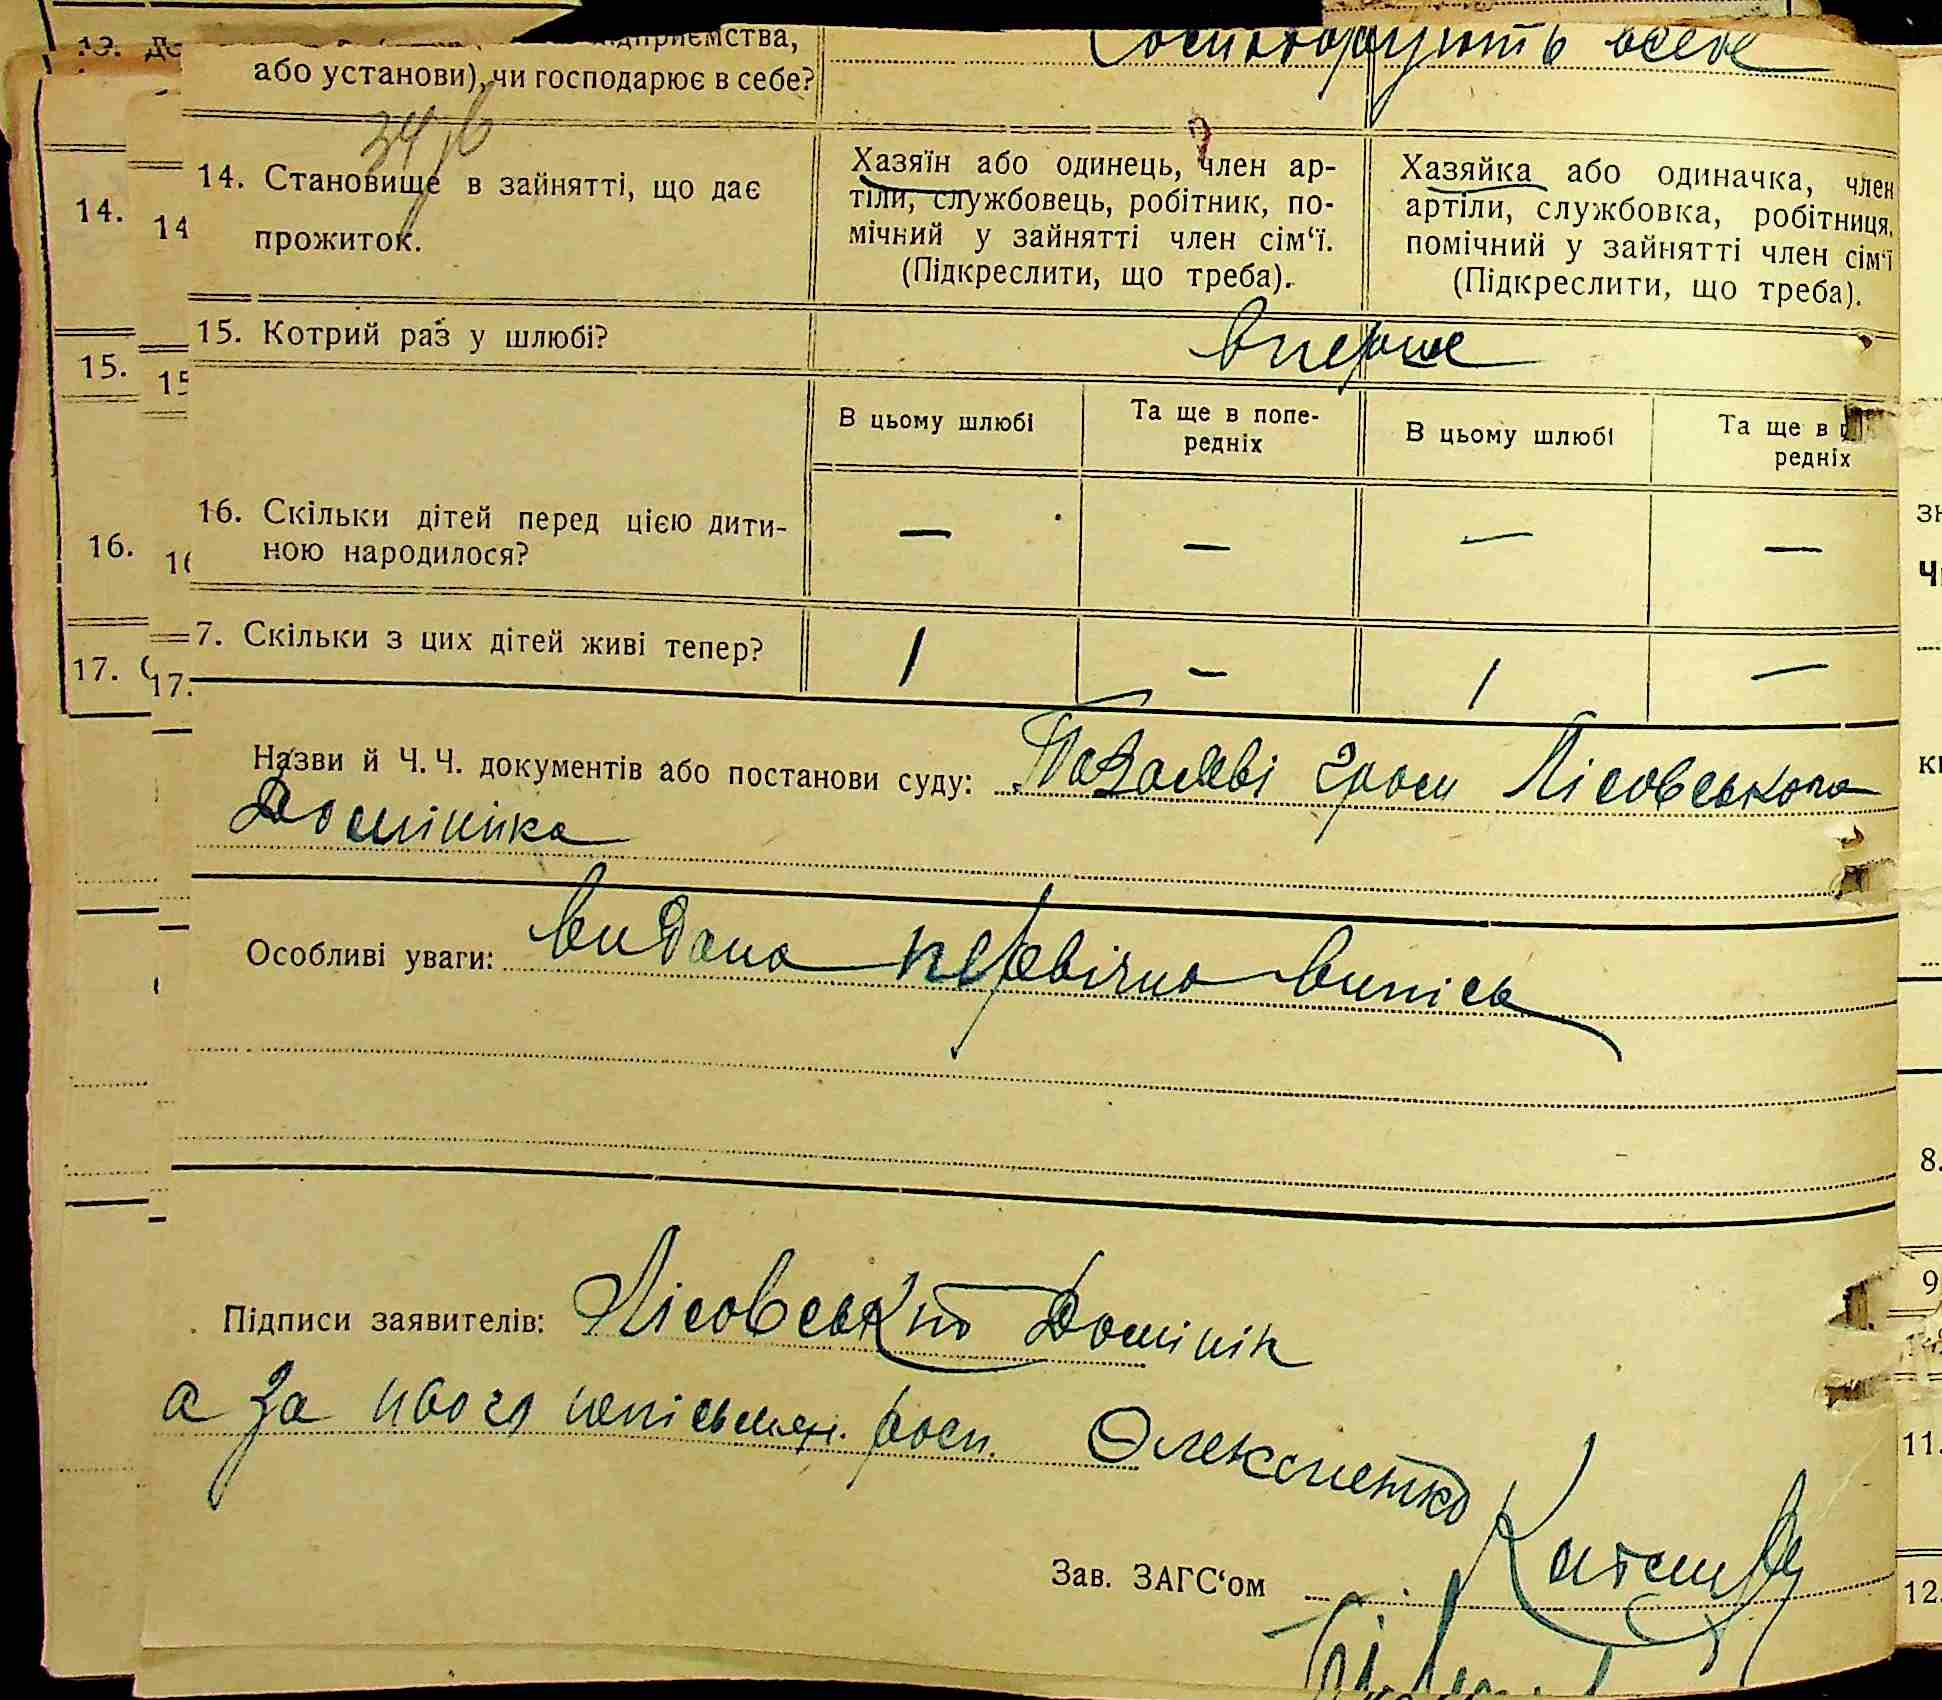 13. До
підприємства,
або установи), чи господарює в себе?
Господарують в себе
34 р
14. Становище в зайнятті, що дає
прожиток.
Хазяїн або одинець, член ар-
тіли, службовець, робітник, по-
мічний у зайнятті член сім'ї.
(Підкреслити, що треба).
Хазяйка або одиначка, член
артіли, службовка, робітниця,
помічний у зайнятті член сім'ї
(Підкреслити, що треба).
14.
14
15. Котрий раз у шлюбі?
вперше
15.
15
В цьому шлюбі
Та ще в попе-
редніх
В цьому шлюбі
Та ще в
редніх
16. Скільки дітей перед цією дити-
ною народилося?
— — — —
16.
16
7. Скільки з цих дітей живі тепер?
1 — 1 —
17. С
17.
Назви й Ч. Ч. документів або постанови суду: Посвідки гром Лісовського
Домініка
Особливі уваги: видана первічна випісь
Підписи заявителів: Лісовський Домінік
а за нього неписьмен. росп.
Зав. ЗАГС'ом
8.
9
11.
12.